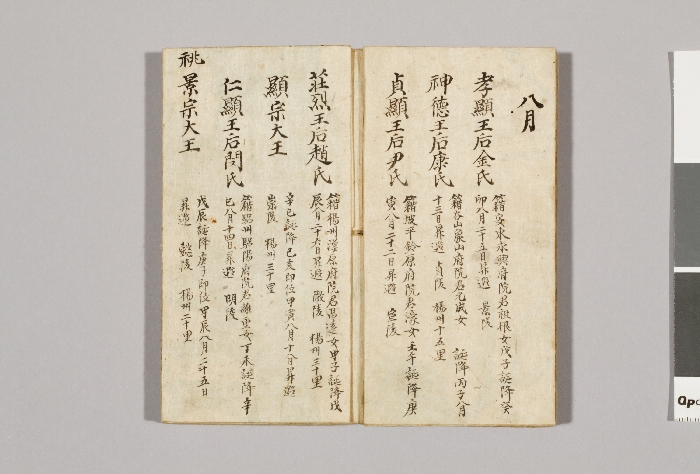 八月
孝顯王后金氏
籍安東永興府院君祖根女戊子誕降癸
卯八月二十五日昇遐 景陵
神德王后康氏
籍谷山象山府院君允成女 誕降丙子八月
十三日昇遐 貞陵 楊州十五里
貞顯王后尹氏
籍坡平鈴原府院君壕女壬午誕降庚
寅八月二十二日昇遐 宣陵
莊烈王后趙氏
籍楊州漢原府院君昌遠女甲子誕降戊
辰八月二十六日昇遐 徽陵 楊州三十里
顯宗大王
辛巳誕降己亥即位甲寅八月十八日昇遐
崇陵 楊州三十里
仁顯王后閔氏
籍驪州驪陽府院君維重女丁未誕降辛
巳八月十四日昇遐 明陵
祧 景宗大王
戊辰誕降庚子即位甲辰八月二十五日
昇遐 懿陵 楊州二十里